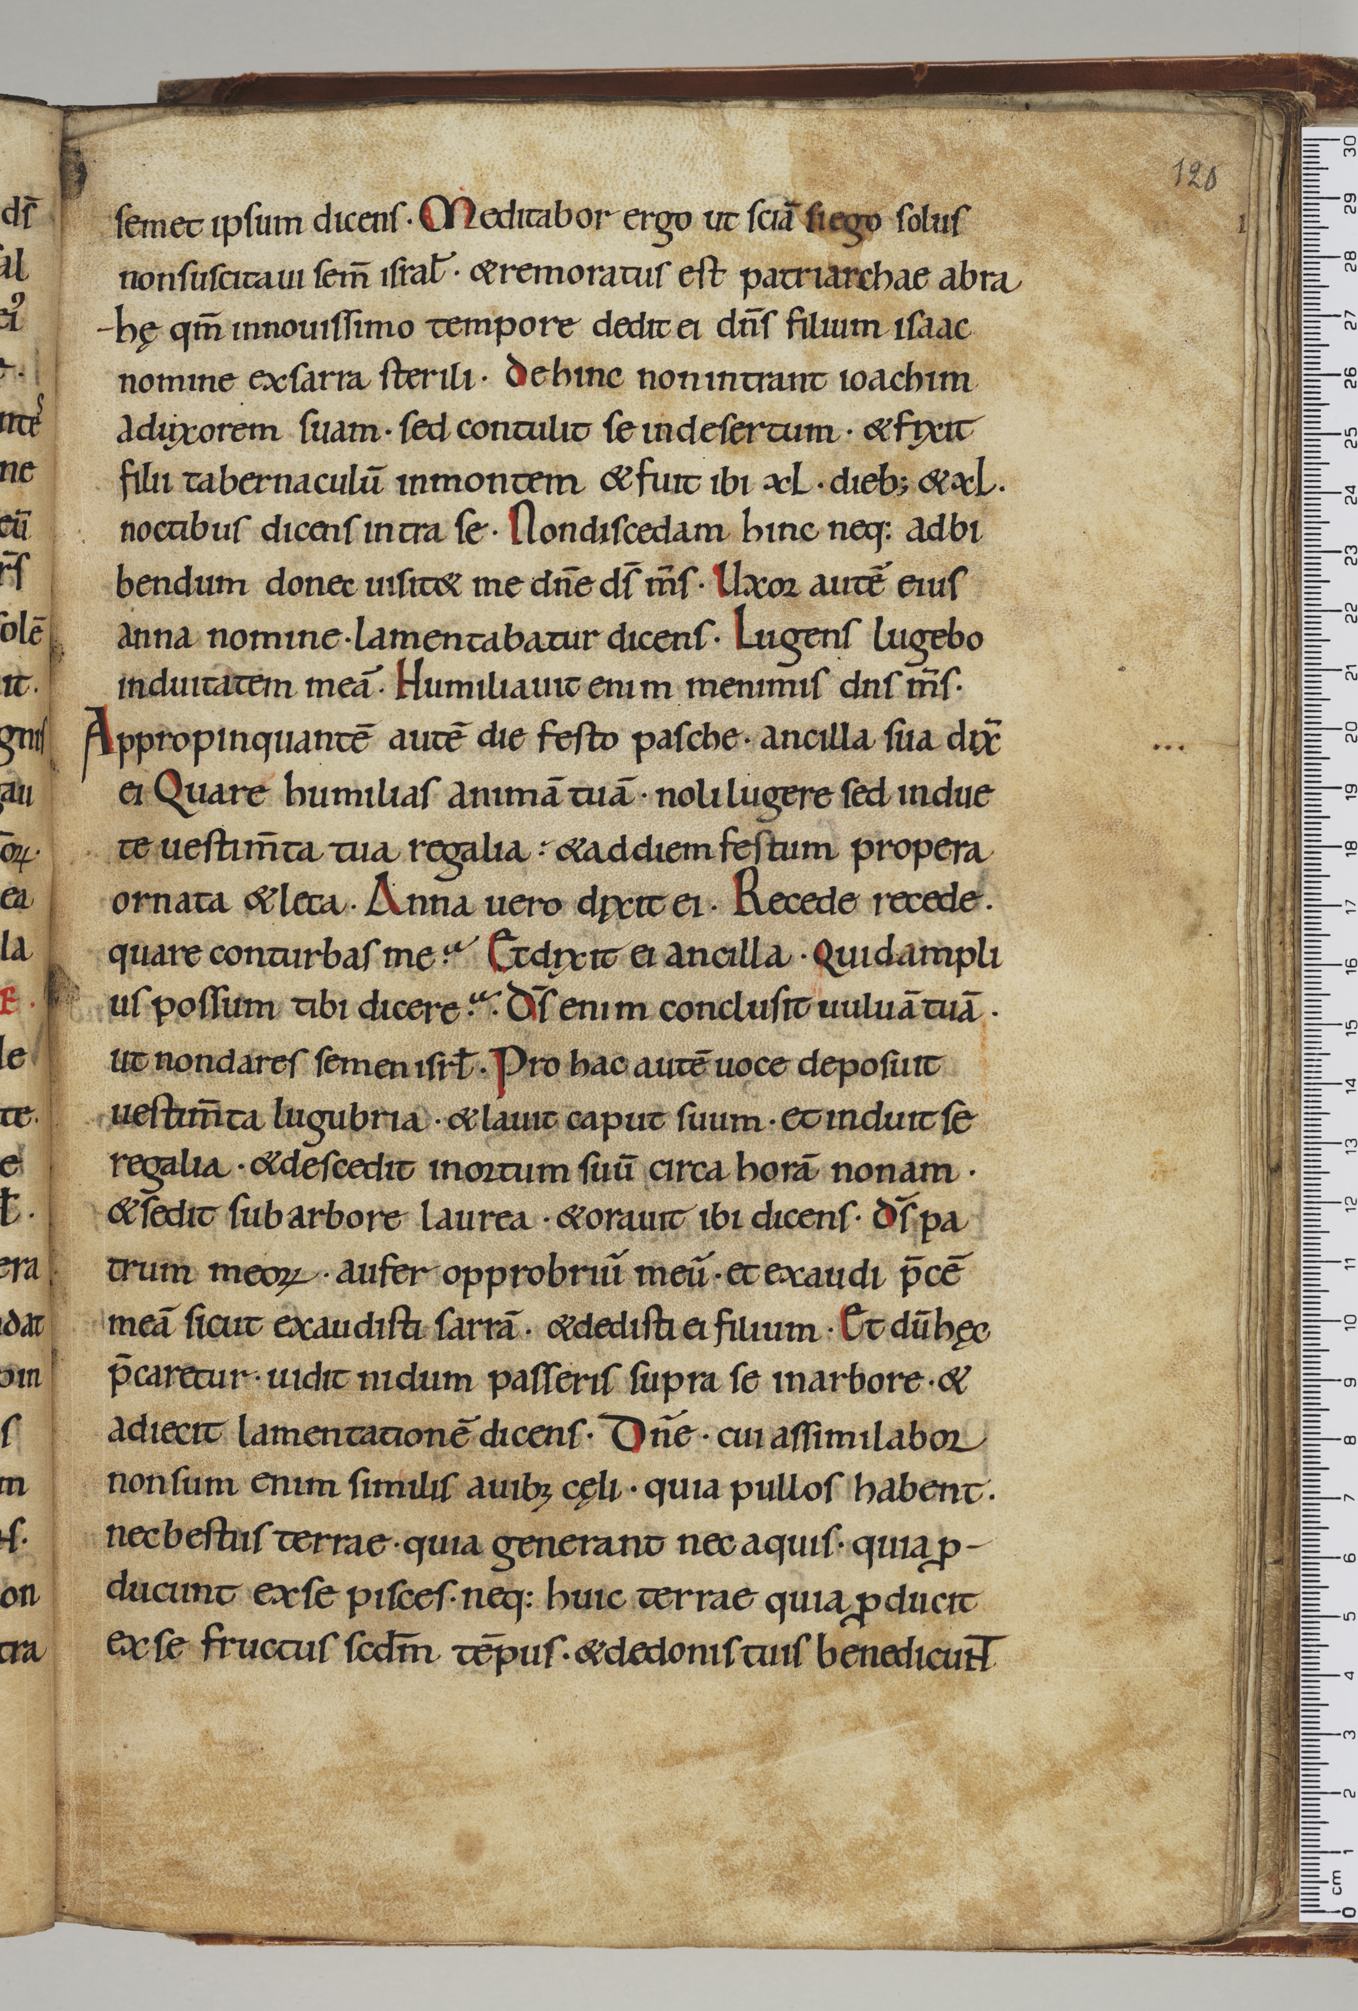 120
semet ipsum dicens · Meditabor ergo ut sciā siego solus
nonsuscitaui sem̄ israł · &remoratus est patriarchae abra
-hę qm̄ innouissimo tempore dedit ei dn̄s filium isaac
nomine exsarra sterili · dehinc nonintrant ioachim
aduxorem suam · sed contulit se indesertum · &fixit
filii tabernaculū inmontem &fuit ibi xl · dieb; &xl ·
noctibus dicens intra se · Nondiscedam hinc neq: adbi
bendum donec uisit& me dn̄e ds̄ m̄s · Uxor autē eius
anna nomine · lamentabatur dicens · Lugens lugebo
induitatem meā · Humiliauit enim menimis dns m̄s ·
Appropinquantē autē die festo pasche · ancilla sua dix̄
ei Quare humilias animā tuā · noli lugere sed indue
te uestim̄ta tua regalia : &addiem festum propera
ornata &leta · Anna uero dixit ei · Recede recede ·
quare conturbas me · Et dixit ei ancilla · Quidampli
us possum tibi dicere · Ds̄ enim conclusit uuluā tuā ·
ut nondares semen isrł · Pro hac autē uoce deposuit
uestim̄ta lugubria · &lauit caput suum · et induit se
regalia · &descedit inortum suū circa horā nonam ·
&sēdit sub arbore laurea · &orauit ibi dicens · ds̄ pa
trum meoꝝ · aufer opprobriū meū · et exaudi p̄cē
meā sicut exaudisti sarrā · &dedisti ei filium · Et dū hęc
p̄caretur · uidit nidum passeris supra se inarbore · &
adiecit lamentationē dicens · Dn̄e · cui assimilabor
nonsum enim similis auibꝫ cęli · quia pullos habent ·
necbestiis terrae · quia generant nec aquis · quia ꝓ-
ducunt exse pisces · neq: huic terrae quia ꝓducit
exse fructus scdm̄ tēpus · &dedonis tuis benedicunt